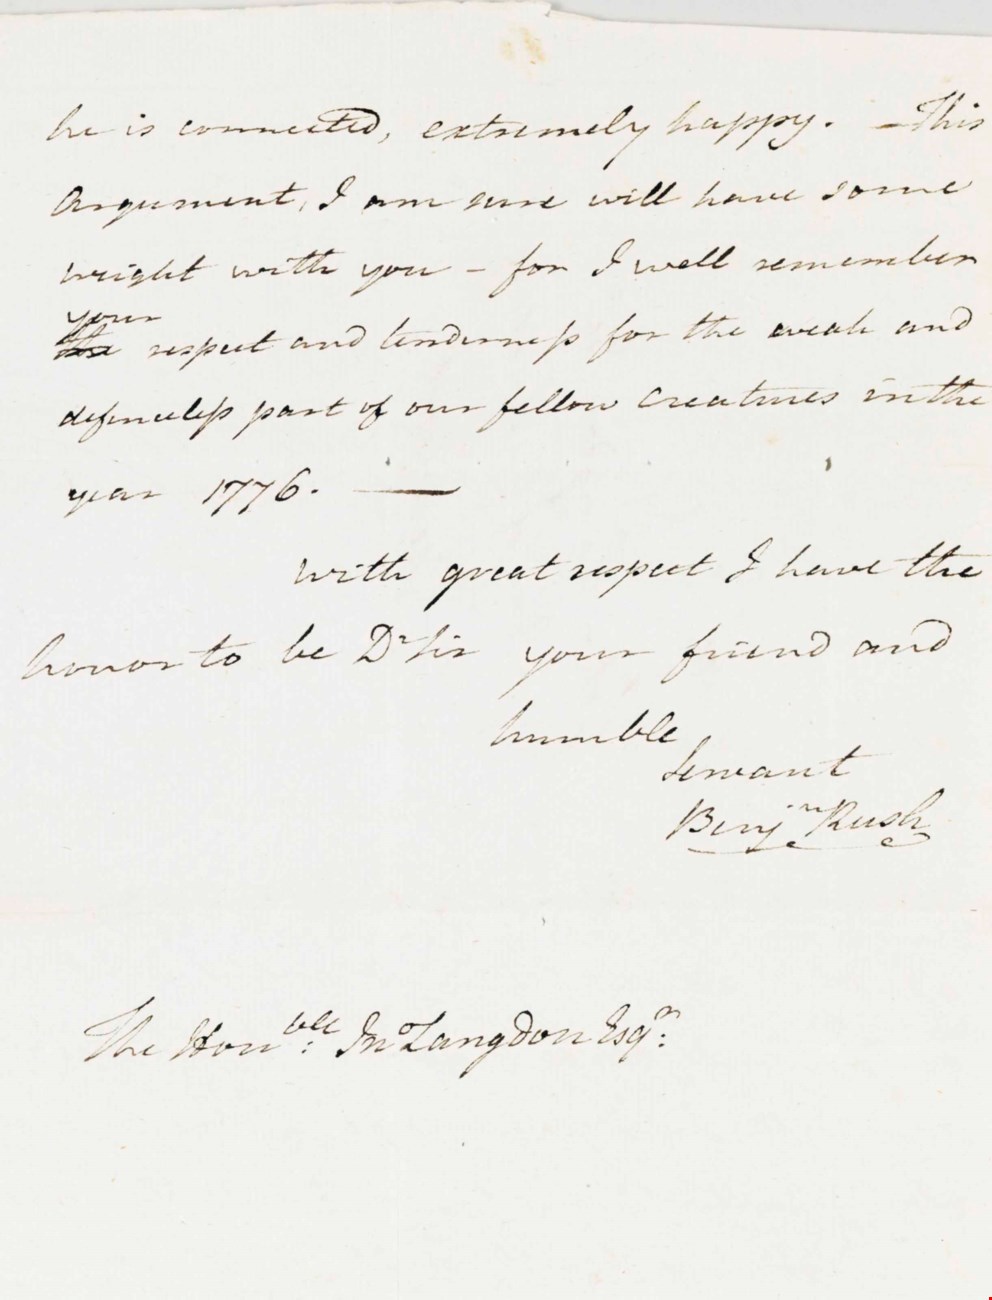 he is connected, extremely happy. – This
Argument, I am sure will have some
weight with you – for I well remember
your
the respect and tenderness for the weak and
defenceless part of our fellow creatures in the
year 1776. —
with great respect I have the
honor to be Dr Sir your friend and
humble
Servant
Benjn Rush
The Honble: Jno Langdon Esqr: